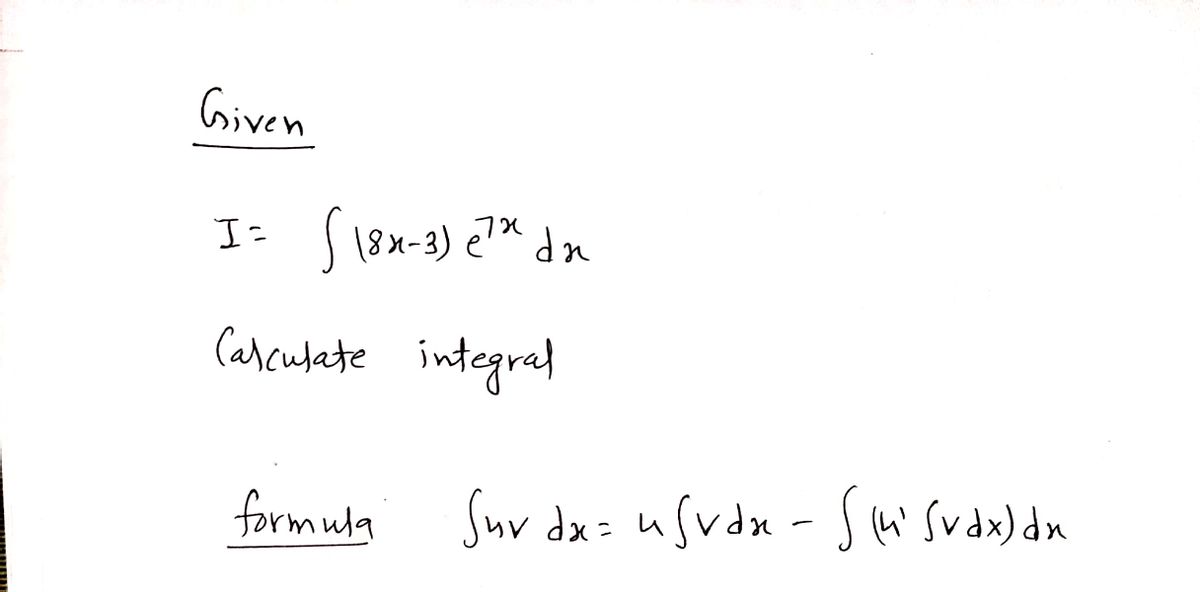 Given
I = ∫ (8x-3) e^{7x} dx
Calculate integral
formula ∫uv dx = u ∫v dx - ∫ (u' ∫v dx) dx